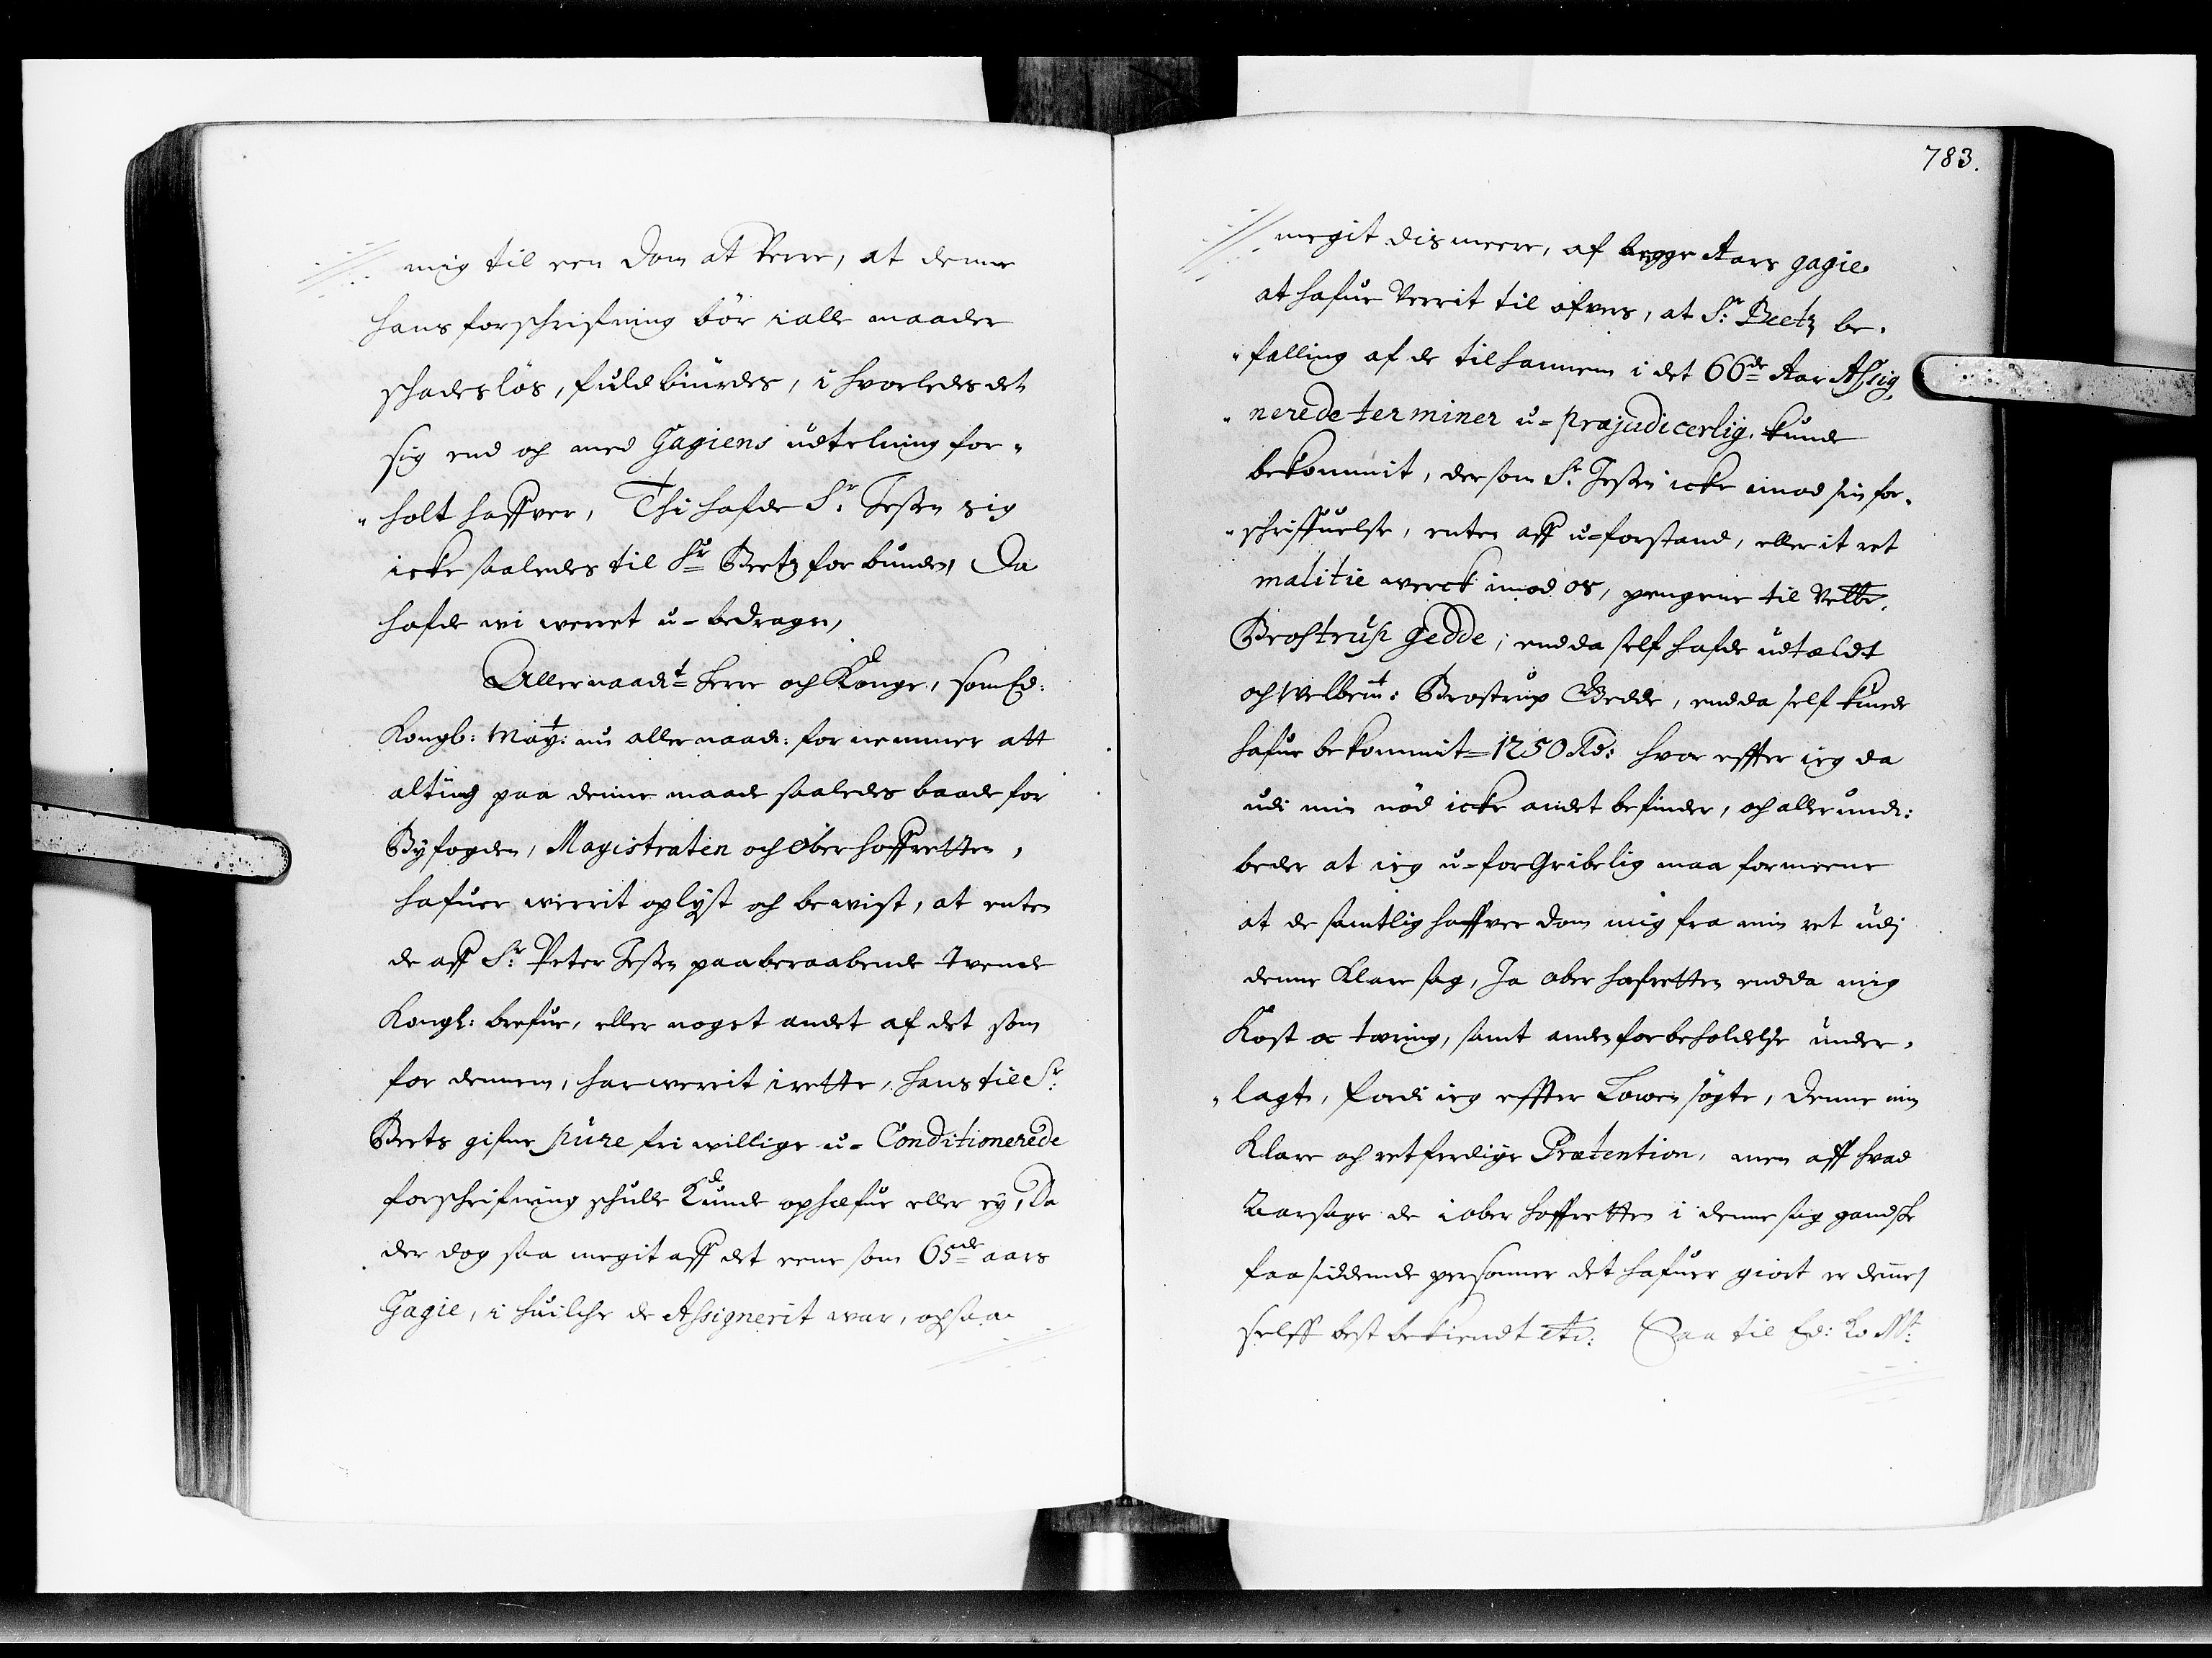 mig til een Dom at Verre, at denne
hans forschrifning bör i alle maader
schadesløs, fuldbiurdes, i hvorledes det
sig end och med Gagiens udtelning for-
"holt haffver, Thi hafde Sr. Jessen sig
icke saaledes til Sr Beetz forbunden, Da
hafde wi werret u-bedragen,
Allernaadist Herre och Konge, som Ed:
Kongl: Mayt: nu allernaadi: fornemmer att
alting paa denne maade saaledes baade for
Byfogden, Magistraten och Oberhoffretten,
hafuer werrit oplyst och bewist, at enten
de aff Sr. Peter Jessen paaberaabende tvende
Kongl: brefue, eller noget andet af det som
for dennem, har werrit i rette, hans til Sr.
Beets gifne pure friwillige u-Conditionerede
forschrifwing schulle Kunde ophæfue eller ey, Da
der dog saa megit aff det eene som 65de aars
Gagie, i huilche de Assignerit war, och saa
783.
megit dis meere, af begge Aars gagie
at hafue Verrit til ofvers, at Sr. Beetz be-
"falling af de til hannem i det 66de Aar Assig
"nerede terminer u-præjudicerlig kunde
bekommit, dersom Sr. Jessen icke imod sin for-
"schriffuelse, enten aff u-forstand, eller it ret
malitie werck imod os, pengene til Velbr.
Brostrup Gedde, endda self hafde udtældt
och Welbemt: Brostrup Gedde, endda self kunde
hafue bekommit 1250 Rd: hvor effter ieg da
udi min nød icke andet befinder, och allerund:
beder at ieg u-forGribelig maa formeene
at de samtlig haffver Dom mig fra min ret udj
denne Klare sag, Ja Oberhofretten endda mig
Kost oc tæring, samt anden forbeholdelse under-
"lagt, fordi ieg effter Lowen søgte, denne min
Klare och retferdige Prætention, men aff hvad
Aarsage de i Oberhoffretten i denne sag gandske
faa siddende personner det hafuer giort er dennem
selff best bekiendt etc: Saa til Ed: Ko Mt: